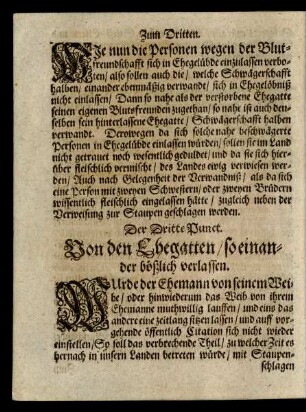 Zum Dritten.
WJe nun die Personen wegen der Blut-
freundschafft sich in Ehegelübde einzulassen verbo-
ten/ also sollen auch die/ welche Schwägerschafft
halben/ einander ebenmäßig verwandt/ sich in Ehegelöbniß
nicht einlassen/ Dann so nahe als der verstorbene Ehegatte
seinen eigenen Blutsfreunden zugethan/ so nahe ist auch den-
selben sein hinterlassene Ehegatte/ Schwägerschafft halben
verwandt. Derowegen da sich solche nahe beschwägerte
Personen in Ehegelübde einlassen würden/ sollen sie im Land
nicht getrauet noch wesentlich geduldet/ und da sie sich hier-
über fleischlich vermischt/ des Landes ewig verwiesen wer-
den/ Auch nach Gelegenheit der Verwandniß/ als da sich
eine Person mit zweyen Schwestern/ oder zweyen Brüdern
wissentlich fleischlich eingelassen hätte/ zugleich neben der
Verweisung zur Staupen geschlagen werden.
Der Dritte Punct.
Von den Ehegatten/ so einan-
der bößlich verlassen.
WUrde der Ehemann von seinem Wei-
be/ oder hinwiederum das Weib von ihrem
Ehemanne muthwillig lauffen/ und eins das
andere eine zeitlang sitzen lassen/ und auff vor-
gehende öffentlich Citation sich nicht wieder
einstellen/ So soll das verbrechende Theil/ zu welcher Zeit es
hernach in unsern Landen betreten würde/ mit Staupen-
schlagen